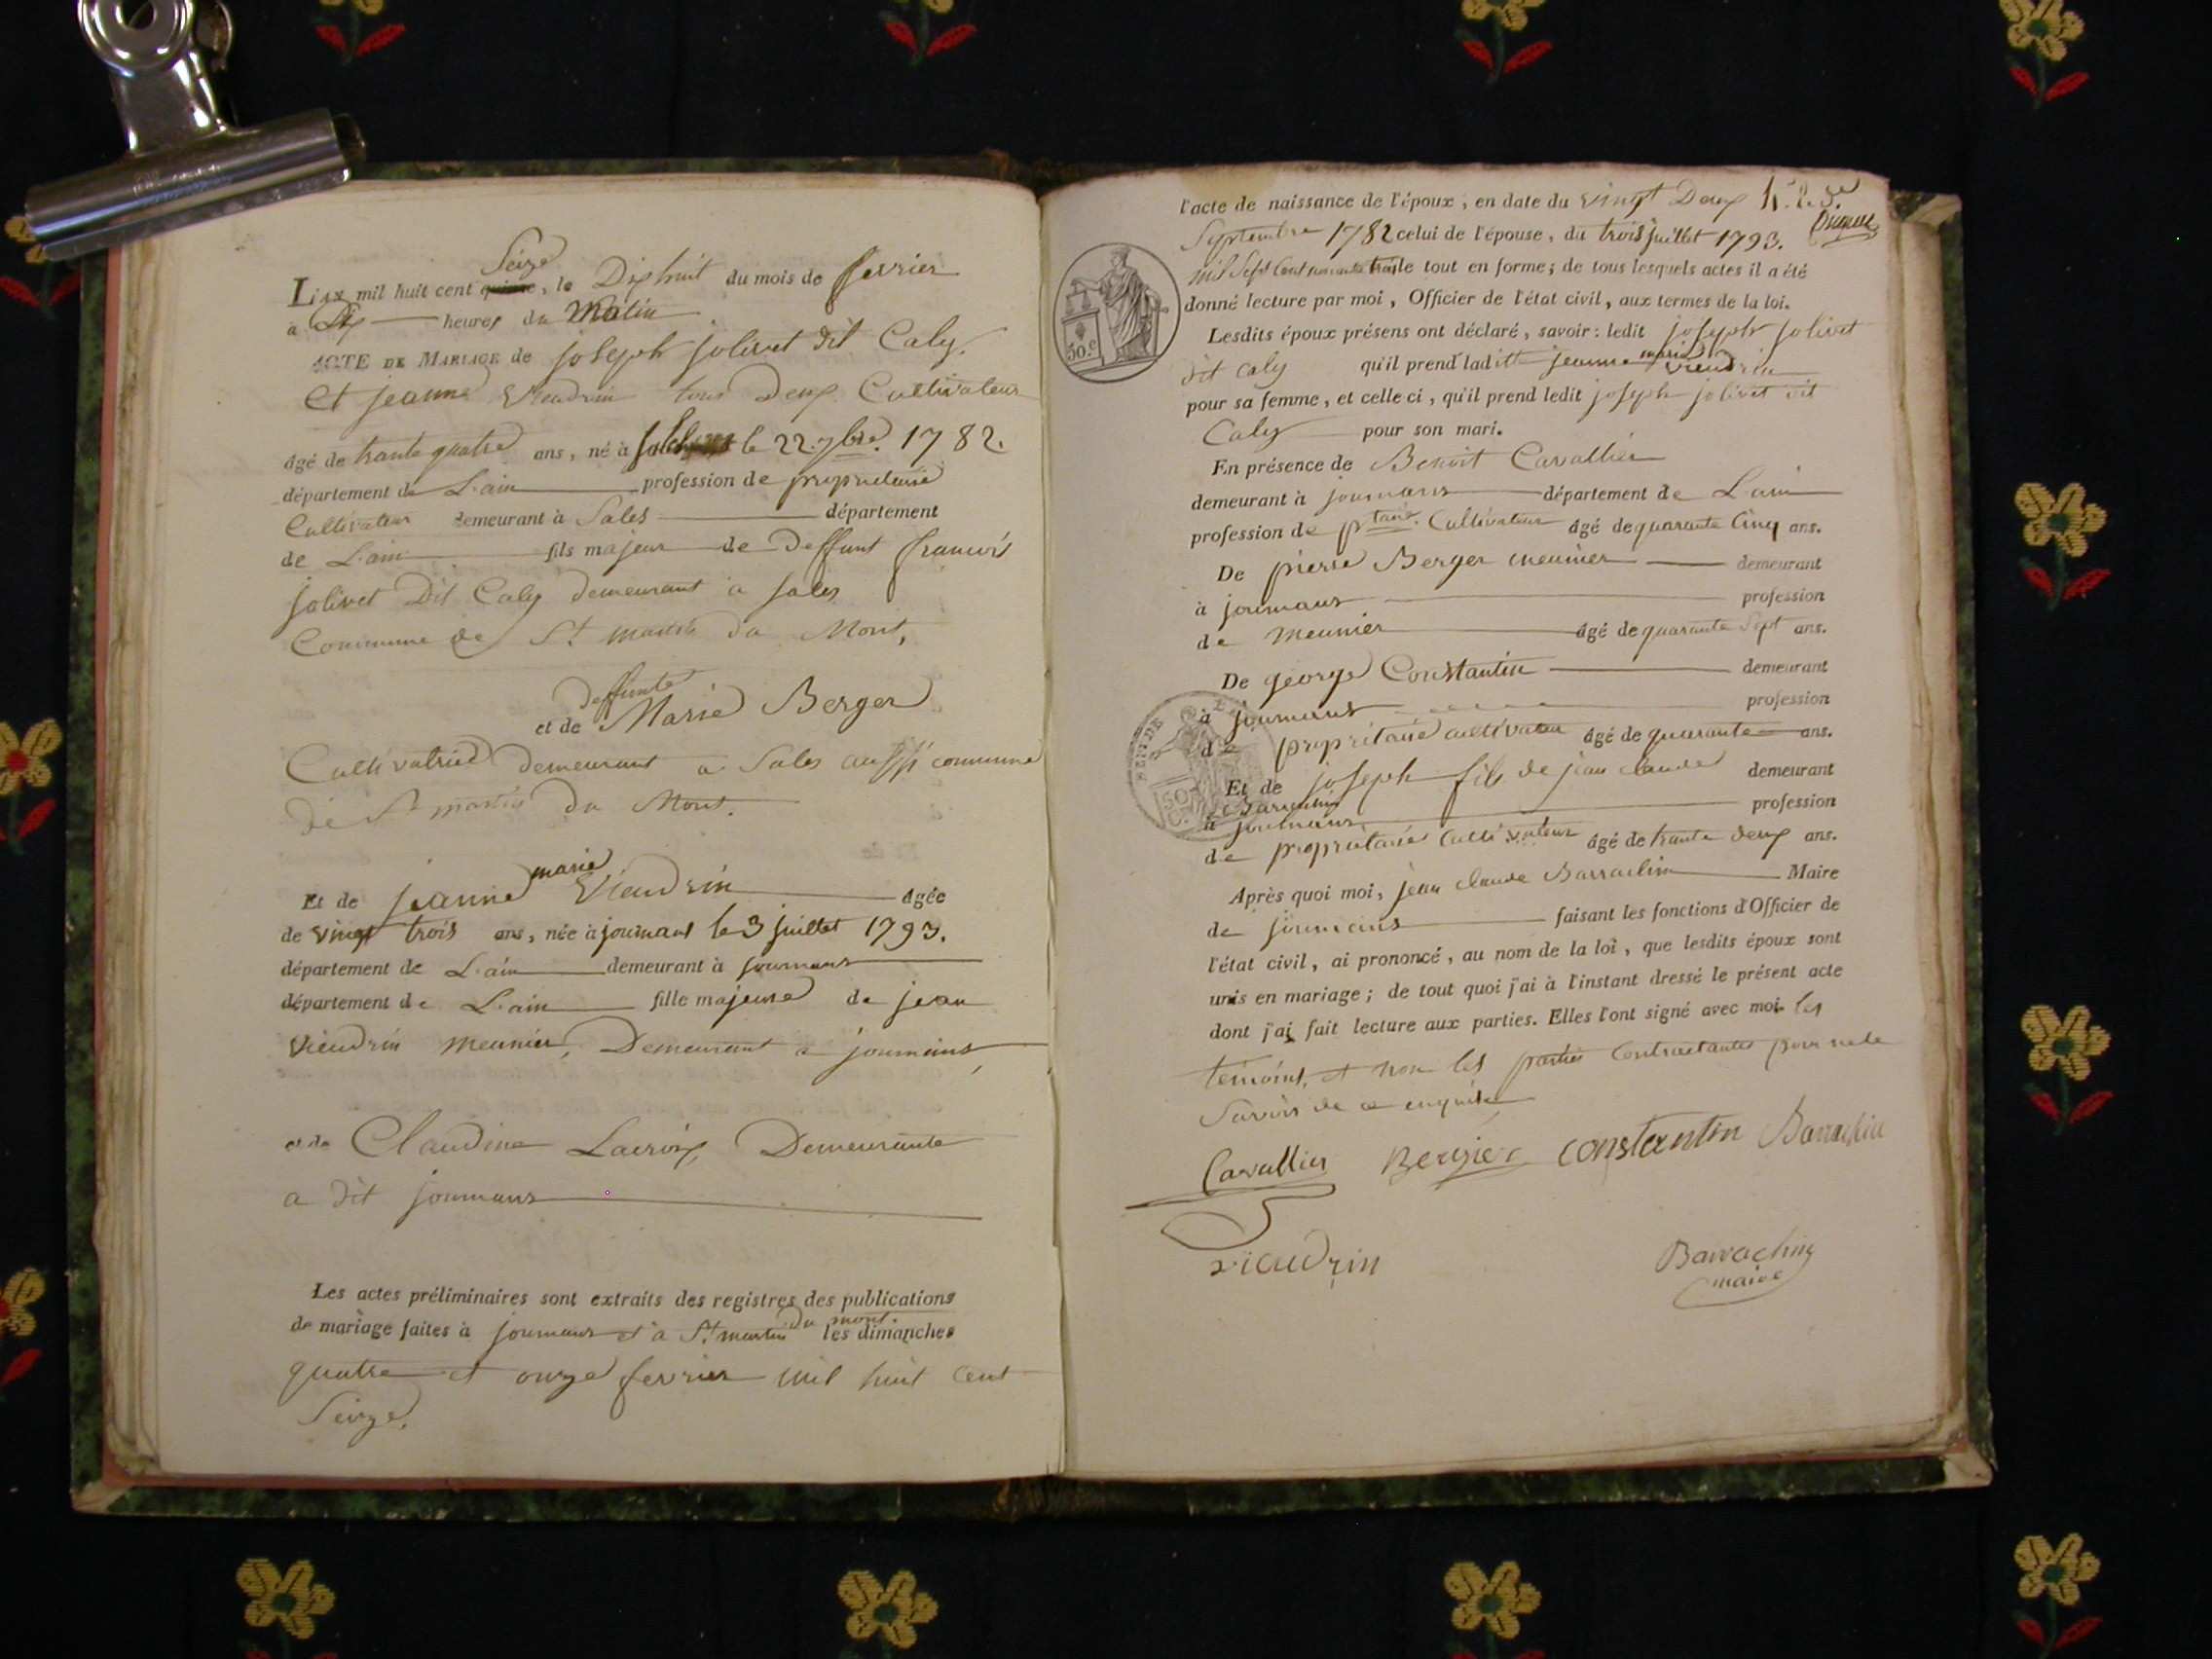 Seize
L'an mil huit cent quinze, le Dix huit du mois de fevrier
à Dix heures du Matin
ACTE DE MARIAGE de joseph jolivet dit Caly.
Et jeanne Vieudrin tous Deux Cultivateur
âgé de trante quatre ans, né à le 22. 7bre. 1782.
département de L'ain profession de proprietaire
Cultivateur demeurant à Sales département
de L'ain fils majeur de Deffunt francois
jolivet Dit Caly demeurant à Sales
Commune de St. martin du Mont,
deffunte
et de Marie Berger
Cultivatrice demeurant a Sales aussi commune
de St martin du Mont.
marie
Et de jeanne Vieudrin âgée
de vingt trois ans, née à joumans le 3 juillet 1793.
département de L'ain demeurant à joumans
département de L'ain fille majeure de jean
Vieudrin meunier, Demeurant a joumans,
et de Claudine Lacroix Demeurante
a dit joumans
Les actes préliminaires sont extraits des registres des publications
du mont.
de mariage faites à joumans et à St. martin les dimanches
quatre et onze fevrier mil huit cent
Seize.
l'acte de naissance de l'époux, en date du vingt Deux
Septembre 1782 celui de l'épouse, du trois juillet 1793.
mil Sept Cent nonante trois le tout en forme; de tous lesquels actes il a été
donné lecture par moi, Officier de l'état civil, aux termes de la loi.
Lesdits époux présens ont déclaré, savoir: ledit joseph jolivet
marie
dit Caly qu'il prend ladite jeanne Vieudrin
pour sa femme, et celle ci, qu'il prend ledit joseph jolivet dit
Caly pour son mari.
En présence de Benoit Cavallier
demeurant à joumans département de L'ain
profession de ptaire. Cultivateur âgé de quarante Cinq ans.
De pierre Berger meunier demeurant
à joumans profession
de meunier âgé de quarante Sept ans.
De george Constantin demeurant
à joumans profession
de propriétaire cultivateur âgé de quarante ans.
Et de joseph fils de jean claude demeurant
Barrachin
à joumans profession
de proprietaire Cultivateur âgé de trante deux ans.
Après quoi moi, jean claude Barrachin Maire
de joumans faisant les fonctions d'Officier de
l'état civil, ai prononcé, au nom de la loi, que lesdits époux sont
unis en mariage; de tout quoi j'ai à l'instant dressé le présent acte
dont j'ai fait lecture aux parties. Elles l'ont signé avec moi les
temoins, et non les parties Contractantes pour ne le
Savoir de ce enquise
Cavallier Bergier constantin Barrachin
vieudrin Barrachin
maire
50.c
50
C.